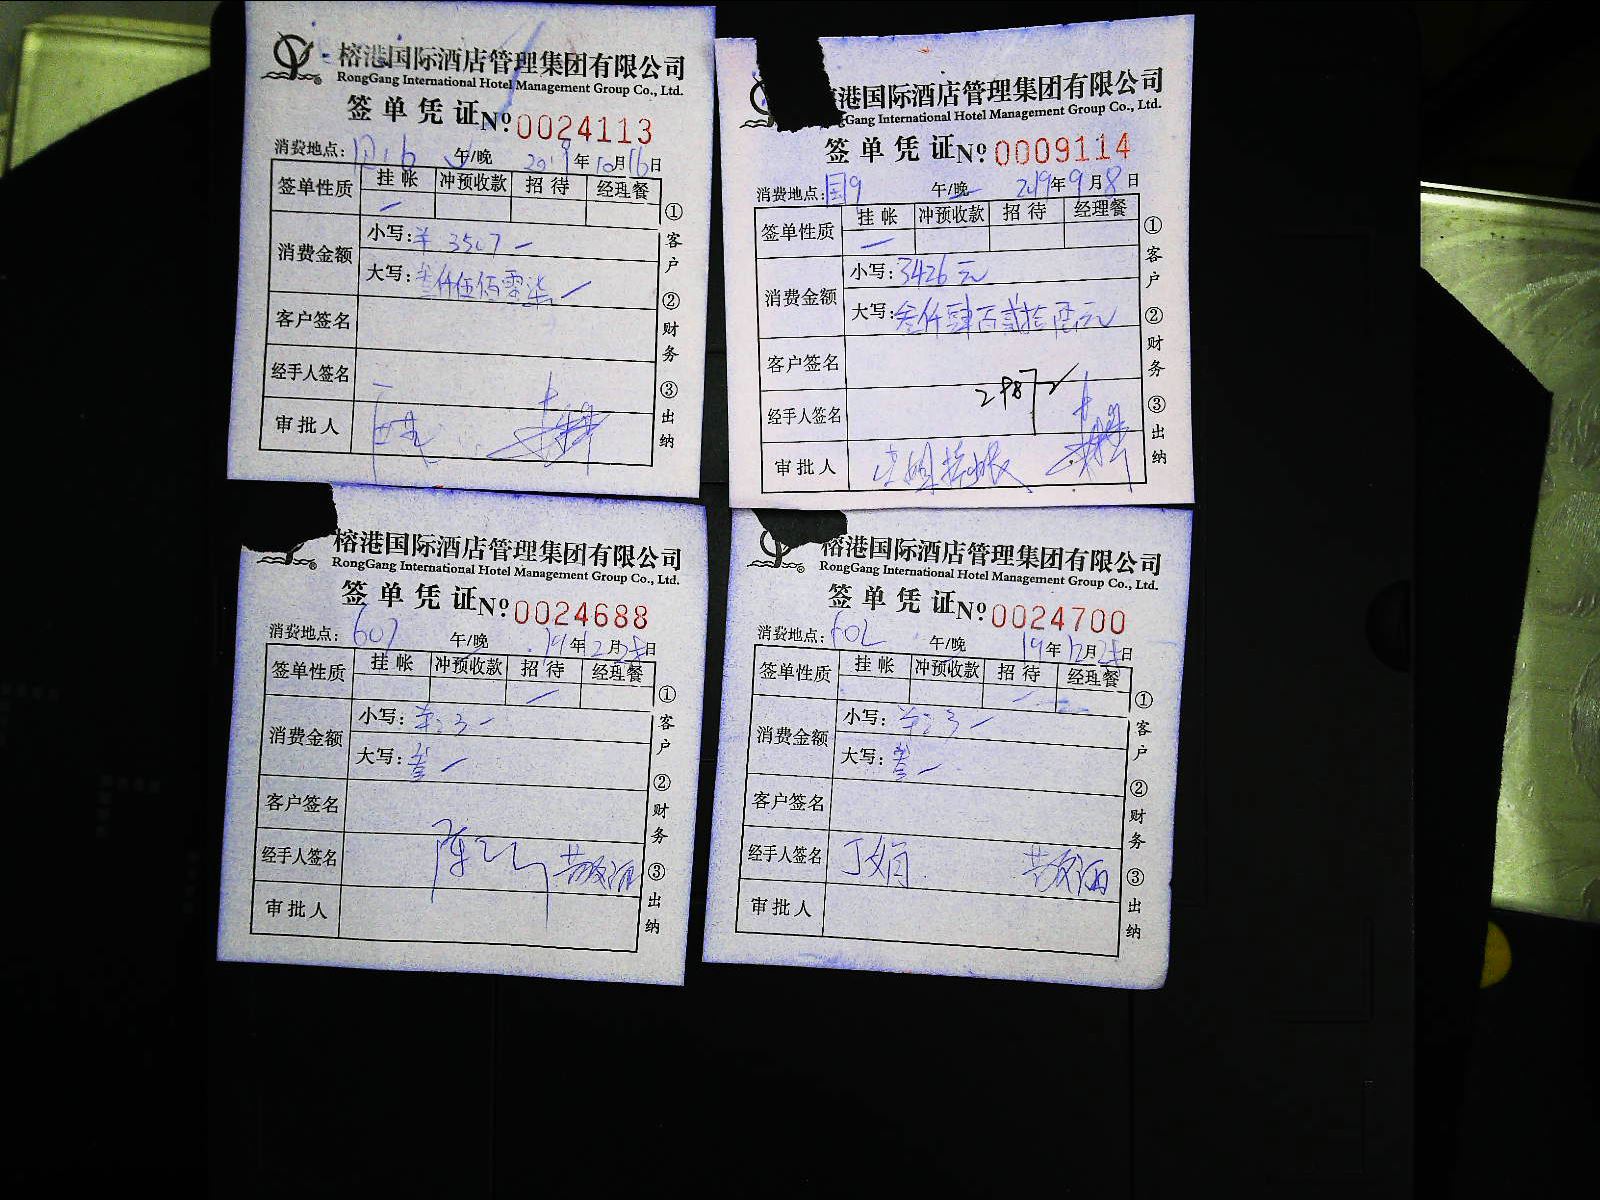 榕港国际酒店管理集团有限公司
RongGang International Hotel Management Group Co., Ltd.
签单凭证 Nº 0024113
消费地点: 午/晚 2019年10月16日
签单性质 挂帐 冲预收款 招待 经理餐
消费金额
小写: 羊 3507 一
大写: 叁仟伍佰零柒
客户签名
经手人签名
审批人
①客户 ②财务 ③出纳
港国际酒店管理集团有限公司
gGang International Hotel Management Group Co., Ltd.
签单凭证 Nº 0009114
消费地点: 国9 午/晚 2019年9月8日
签单性质 挂帐 冲预收款 招待 经理餐
消费金额
小写: 3426元
大写: 叁仟肆百贰拾 元
客户签名
2987
经手人签名
审批人
①客户 ②财务 ③出纳
榕港国际酒店管理集团有限公司
RongGang International Hotel Management Group Co., Ltd.
签单凭证 Nº 0024688
消费地点: 607 午/晚 19年12月28日
签单性质 挂帐 冲预收款 招待 经理餐
消费金额
小写:
大写: 叁
客户签名
经手人签名 陈
审批人
①客户 ②财务 ③出纳
榕港国际酒店管理集团有限公司
RongGang International Hotel Management Group Co., Ltd.
签单凭证 Nº 0024700
消费地点: 602 午/晚 19年12月28日
签单性质 挂帐 冲预收款 招待 经理餐
消费金额
小写:
大写: 叁
客户签名
经手人签名 丁娟
审批人
①客户 ②财务 ③出纳